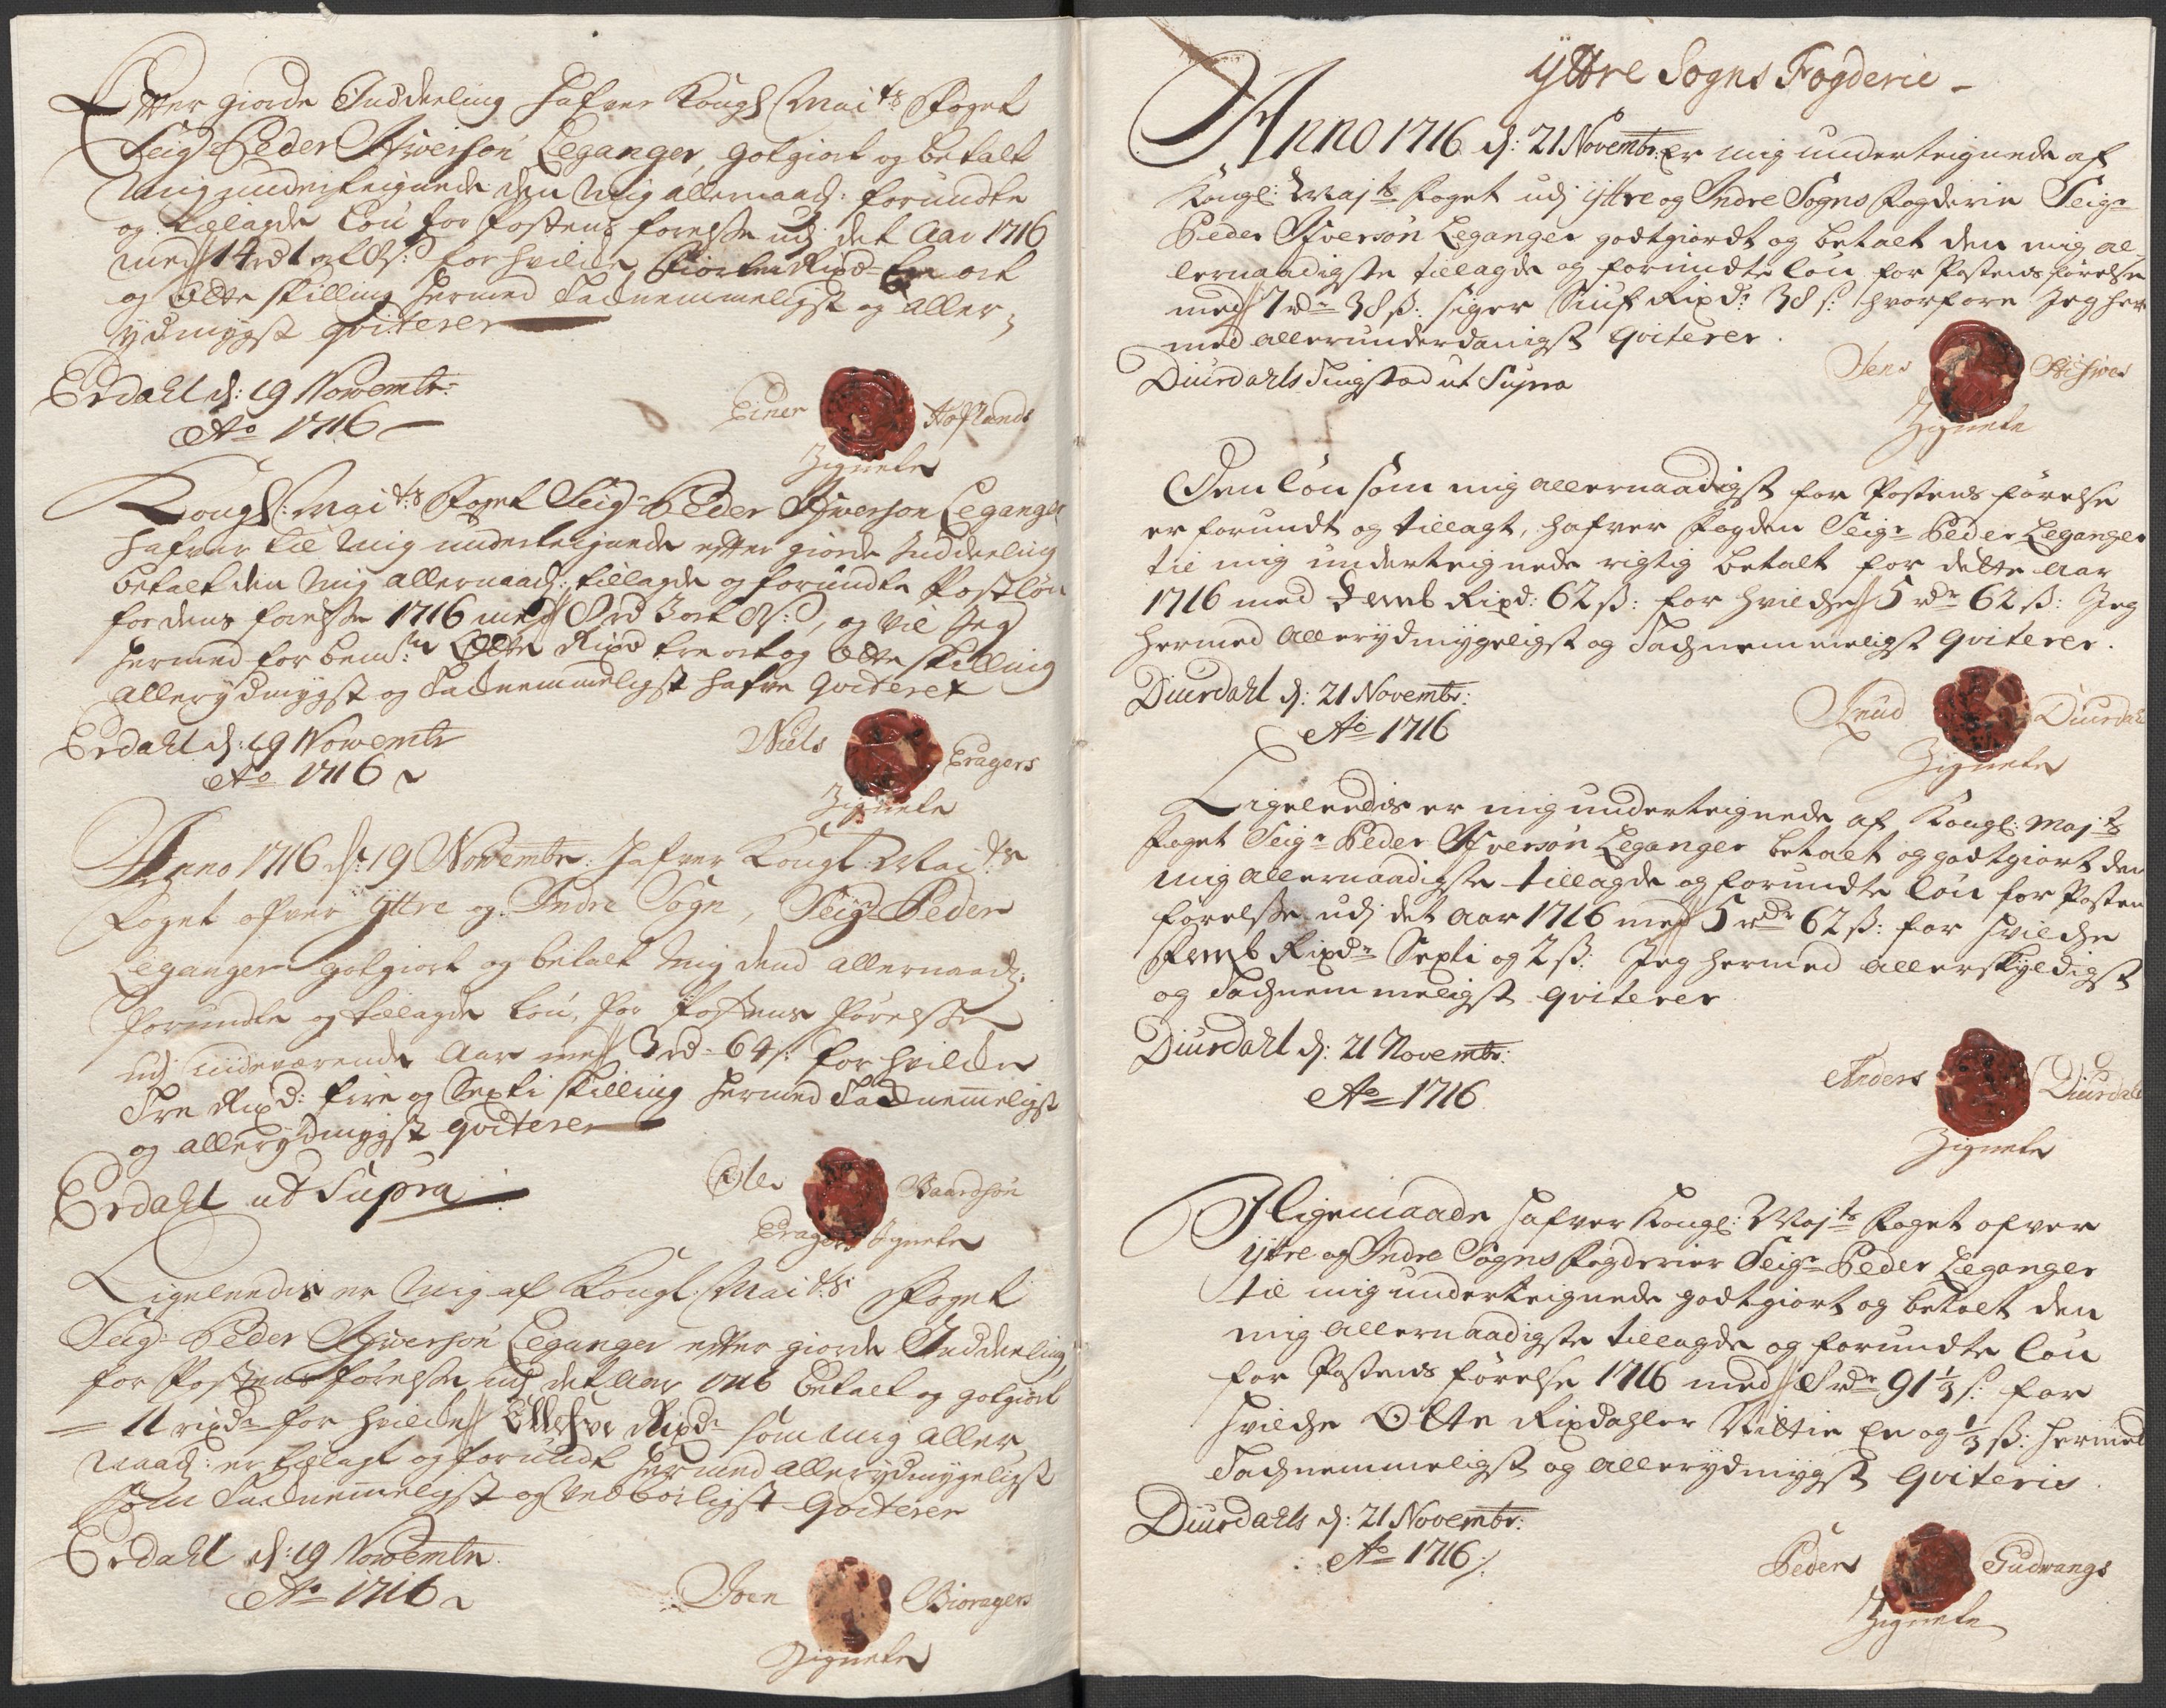 Efter giorde Inddeeling hafver Kongl Mai.ts Foget
Seig.r Peder Ifwersøn Leganger, gotgiort og betalt
mig underteignede den mig allernaad: forundte
og tillagde løn for Postens førelse udj det Aar 1716
med 14 rd 1 ort 8 s: for hvilche Fiorten Rixd.r En ort
og Otte skilling hermed Tachnemmeligst og aller-
ydmygst qviterer
Erdahl d: 19 Novembr:
Ao 1716
Einer Høflands
Zignete
Kongl: Mai.ts Foget Seig.r Peder Ifwerson Leganger
hafver til mig underteignede efter giorde Inddeeling
betalt den mig allernaad: tillagde og forundte Postløn
for dens førelse 1716 med 8 rd 3 ort 8 s:, og vil Jeg
hermed for bem.te Otte Rixd tre ort og Otte skilling
allerydmygst og Tachnemmeligst hafve qviteret
Erdahl d: 19 Novembr
Ao 1716
Niels Eragers
Zignete
Anno 1716 d: 19 Novembr: hafver Kongl: Mai.ts
Foget ofver Yttre og Indre Sogn, Seig.r Peder
Leganger gotgiort og betalt mig dend allernaad:
forundte og tillagde løn, for Postens førelse
udj nuværende Aar med 3 rd 64 s: for hvilche
Tre Rixd: fire og Sexti skilling hermed Tachnemeligst
og allerydmygst qviterer
Erdahl ut Supra
Ole Baardsøn
Eragers Zignete
Ligeleedis er mig af Kongl: Mai.ts Foget
Seig.r Peder Ifwersøn Leganger efter giorde Inddeeling,
for Postens førelse udj det Aar 1716 betalt og gotgiort
11 rixd.r for hvilche Elleve Rixd.r som mig aller
naad: er tillagt og forundt hermed allerydmygeligst
som Tachnemeligst og velbørligst qviterer
Erdahl d: 19 Novembr.
Ao 1716
Joen Bioragers
Zignete
Yttre Sogns Fogderie
Anno 1716 d: 21 Novembr: Er mig underteignede af
Kongl: Maj.ts Foget udj Yttre og Indre Sogns Fogderie Seig.r
Peder Ifversøn Leganger godtgiordt og betalt den mig al-
lernaadigste tillagde og forundte løn for Postens førelse
med 7 rd.r 38 ß: siger Siuf Rixd.r 38 s: hvorfore Jeg her
med allerunderdanigst qviterer.
Diurdahls Tingstad ut Supra
Jens
Zignete
Den løn som mig allernaadigst for Postens førelse
er forundt og tillagt, hafver Fogden Seig.r Peder Leganger
til mig underteignede rigtig betalt for dette Aar
1716 med Femb Rixd: 62 ß: for hvilche 5 rd.r 62 ß: Jeg
hermed Allerydmygeligst og Tachnemmeligst qviterer.
Diurdahl d: 21 Novembr:
Ao 1716
Knud Diurdahl
Zignete
Ligeleedis er mig underteignede af Kongl: Maj.ts
Foget Seig.r Peder Ifversøn Leganger betalt og godtgiort den
mig allernaadigste tillagde og forundte løn for Posten
førelse udj det Aar 1716 med 5 rd.r 62 ß: for hvilche
Femb Rixd.r Sexti og 2 ß: Jeg hermed allerskyldigst
og Tachnemmeligst qviterer
Diurdahl d: 21 Novembr:
Ao 1716
Anders Diurdahl
Zignete
I Ligemaade hafver Kongl: Maj.ts Foget ofver
Yttre og Indre Sogns Fogderier Seig.r Peder Leganger
til mig underteignede godtgiort og betalt den
mig allernaadigste tillagde og forundte løn
for Postens førelse 1716 med 8 rd.r 91 1/3 s: for
hvilche Otte Rixdahler Nittie En og 1/3 ß: hermed
Tachnemmeligst og allerydmygst qviteris.
Diurdahls d: 21 Novembr:
Ao 1716
Peder Gudvangs
Zignete